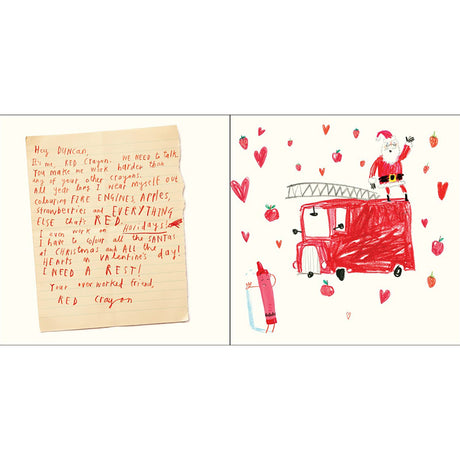 Hey DUNCAN,
It's me, RED Crayon. WE NEED to talk.
You make me work harder than
any of your other crayons.
All year long I wear myself out
colouring FIRE ENGINES, APPLES,
strawberries and EVERYTHING
ELSE that's RED.
I even work on Holidays!
I have to colour all the SANTAS
at CHRISTMAS and ALL the
HEARTS on Valentine's day!
I NEED A REST!
Your overworked friend,
RED Crayon